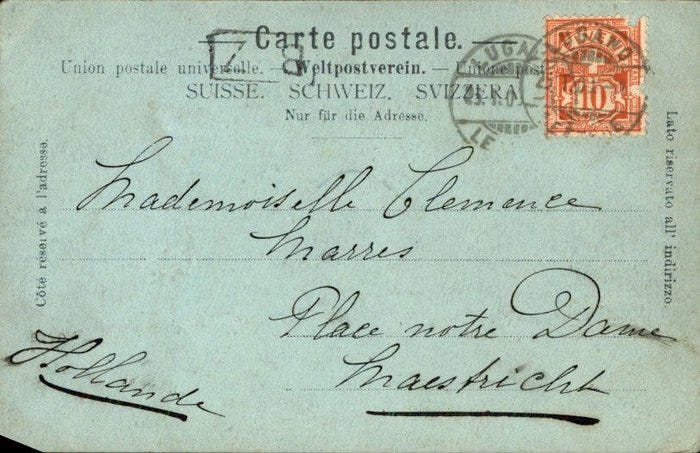 Carte postale.
Union postale universelle. — Weltpostverein. — Unione postale
SUISSE. SCHWEIZ. SVIZZERA
Nur für die Adresse.
Côté réservé à l'adresse.
Lato riservato all' indirizzo.
10
Mademoiselle Clemence
Marres
Place notre Dame
Maestricht
Hollande